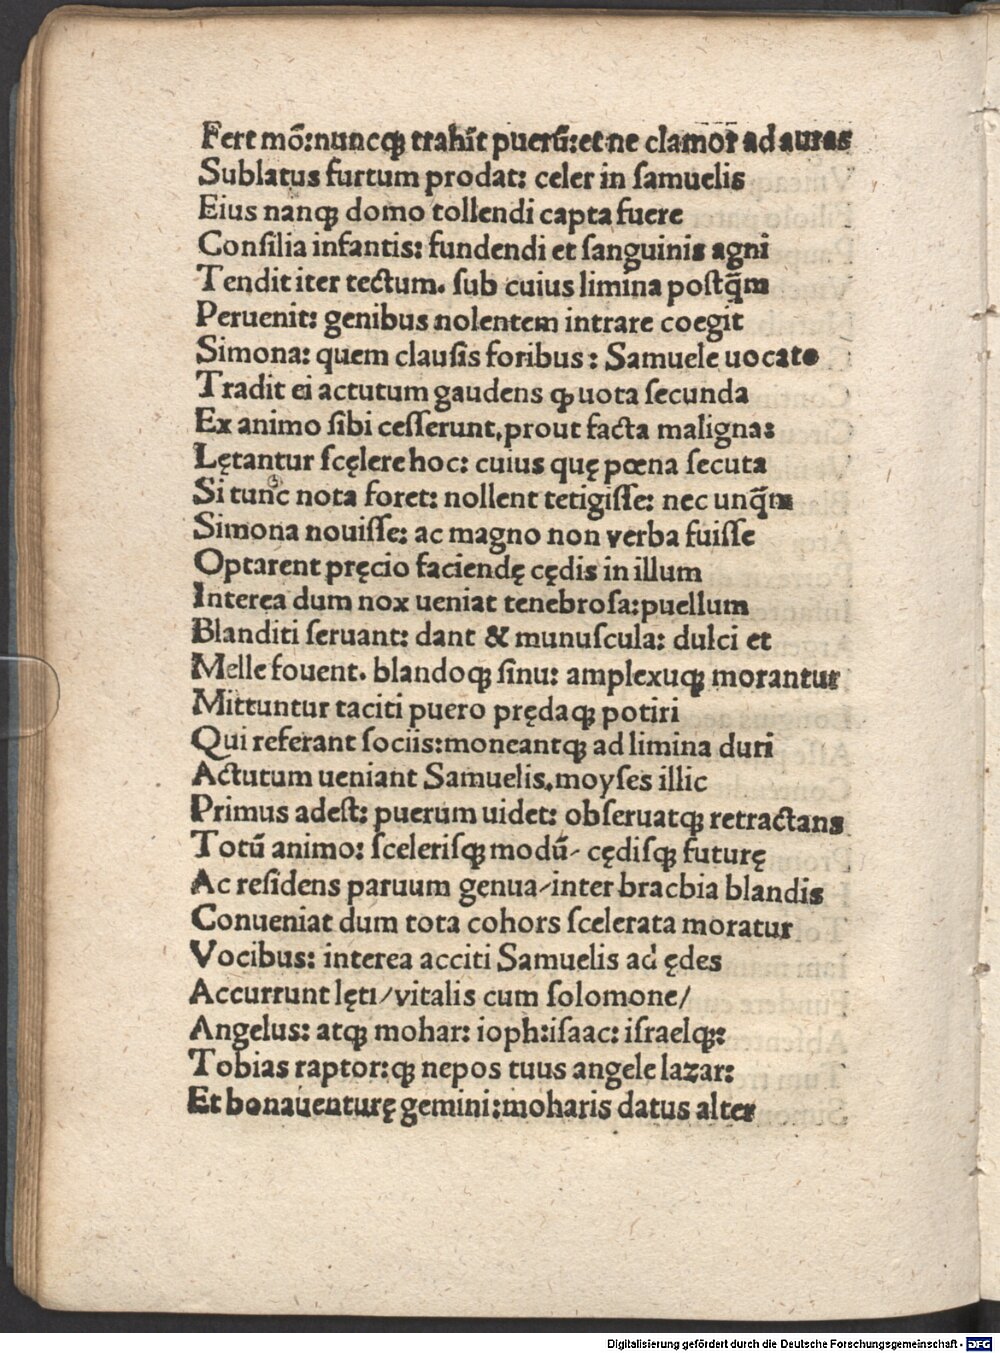 Fert mō:nuncꝙ trahit̄ puerū:et ne clamor ad auras
Sublatus furtum prodat: celer in ſamuelis
Eius nanꝙ domo tollendi capta fuere
Conſilia infantis: fundendi et ſanguinis agni
Tendit iter tectum. ſub cuius limina poſtq̄m
Peruenit: genibus nolentem intrare coegit
Simona: quem clauſis foribus: Samuele uocato
Tradit ei actutum gaudens ꝙ uota ſecunda
Ex animo ſibi ceſſerunt,prout facta maligna:
Lętantur ſcęlere hoc: cuius quę pœna ſecuta
Si tunc nota foret: nollent tetigiſſe: nec unq̄m
Simona nouiſſe: ac magno non verba fuiſſe
Optarent pręcio faciendę cędis in illum
Interea dum nox ueniat tenebroſa:puellum
Blanditi ſeruant: dant & munuſcula: dulci et
Melle fouent. blandoꝙ ſinu: amplexuꝙ morantur
Mittuntur taciti puero prędaꝙ potiri
Qui referant ſociis:moneantꝙ ad limina duri
Actutum ueniant Samuelis.moyſes illic
Primus adeſt: puerum uidet: obſeruatꝙ retractans
Totū animo: ſceleriſꝙ modū/ cędiſꝙ futurę
Ac reſidens paruum genua/inter bracbia blandis
Conueniat dum tota cohors ſcelerata moratur
Vocibus: interea acciti Samuelis ad ędes
Accurrunt lęti/vitalis cum ſolomone/
Angelus: atꝙ mohar: ioph:iſaac: iſraelꝙ:
Tobias raptor:ꝙ nepos tuus angele lazar:
Et bonauenturę gemini:moharis datus alter
Digitalisierung gefördert durch die Deutsche Forschungsgemeinschaft - DFG